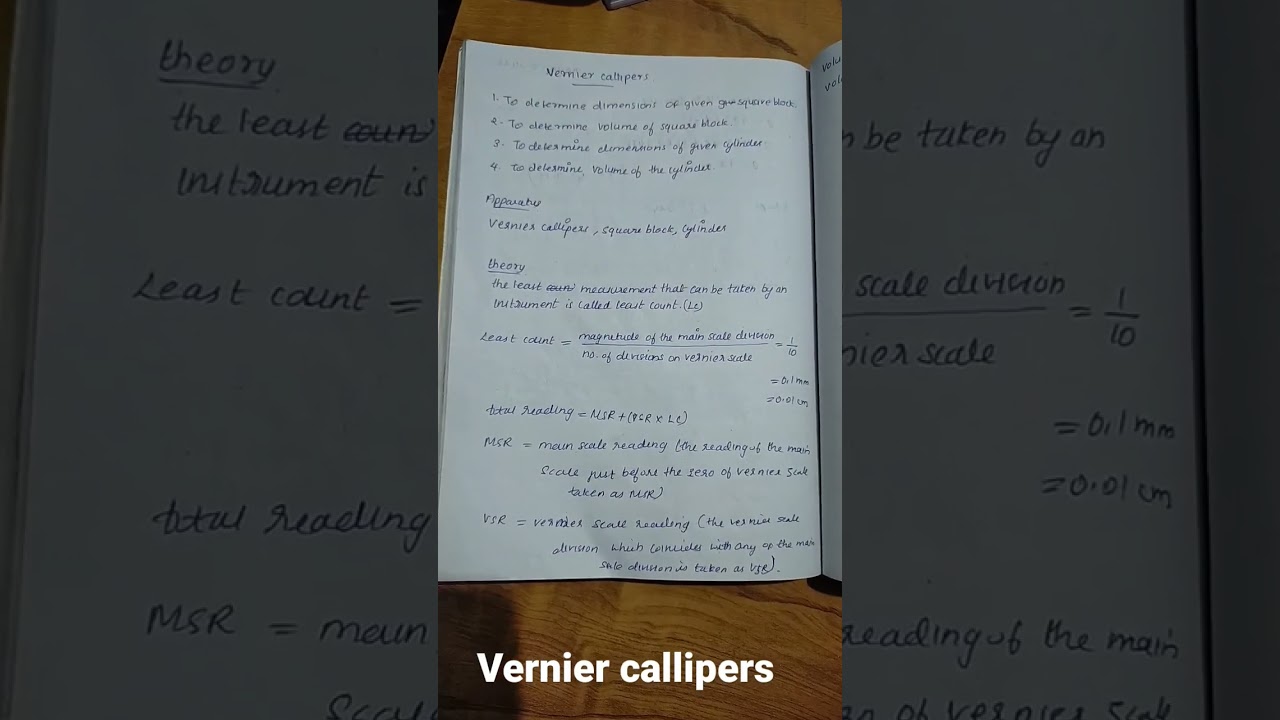 Vernier callipers
1. To determine dimensions of given square block.
2. To determine volume of square block.
3. To determine dimensions of given cylinder.
4. To determine volume of the cylinder.
Apparatus
Vernier callipers, square block, cylinder
theory
the least coun measurement that can be taken by an
instrument is called least count. (LC)
Least count = magnitude of the main scale division / no. of divisions on vernier scale = 1/10
= 0.1 mm
= 0.01 cm
total reading = MSR + (VSR x LC)
MSR = main scale reading (the reading of the main
scale just before the zero of vernier scale
taken as MSR)
VSR = vernier scale reading (the vernier scale
division which coincides with any of the main
scale division is taken as VSR).
Vernier callipers